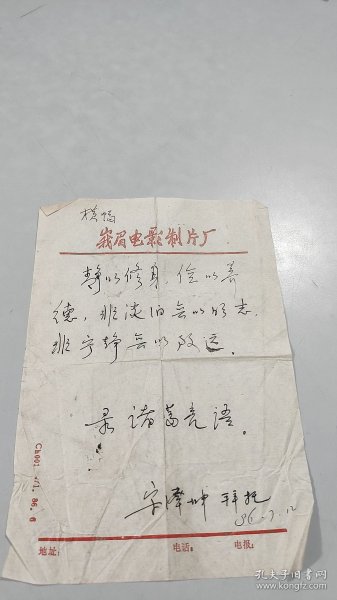 横幅
峨眉电影制片厂
静以修身，俭以养
德，非淡泊无以明志，
非宁静无以致远。
录诸葛亮语。
拜托
86.7.12
地址：
电话：
电报：
孔夫子旧书网